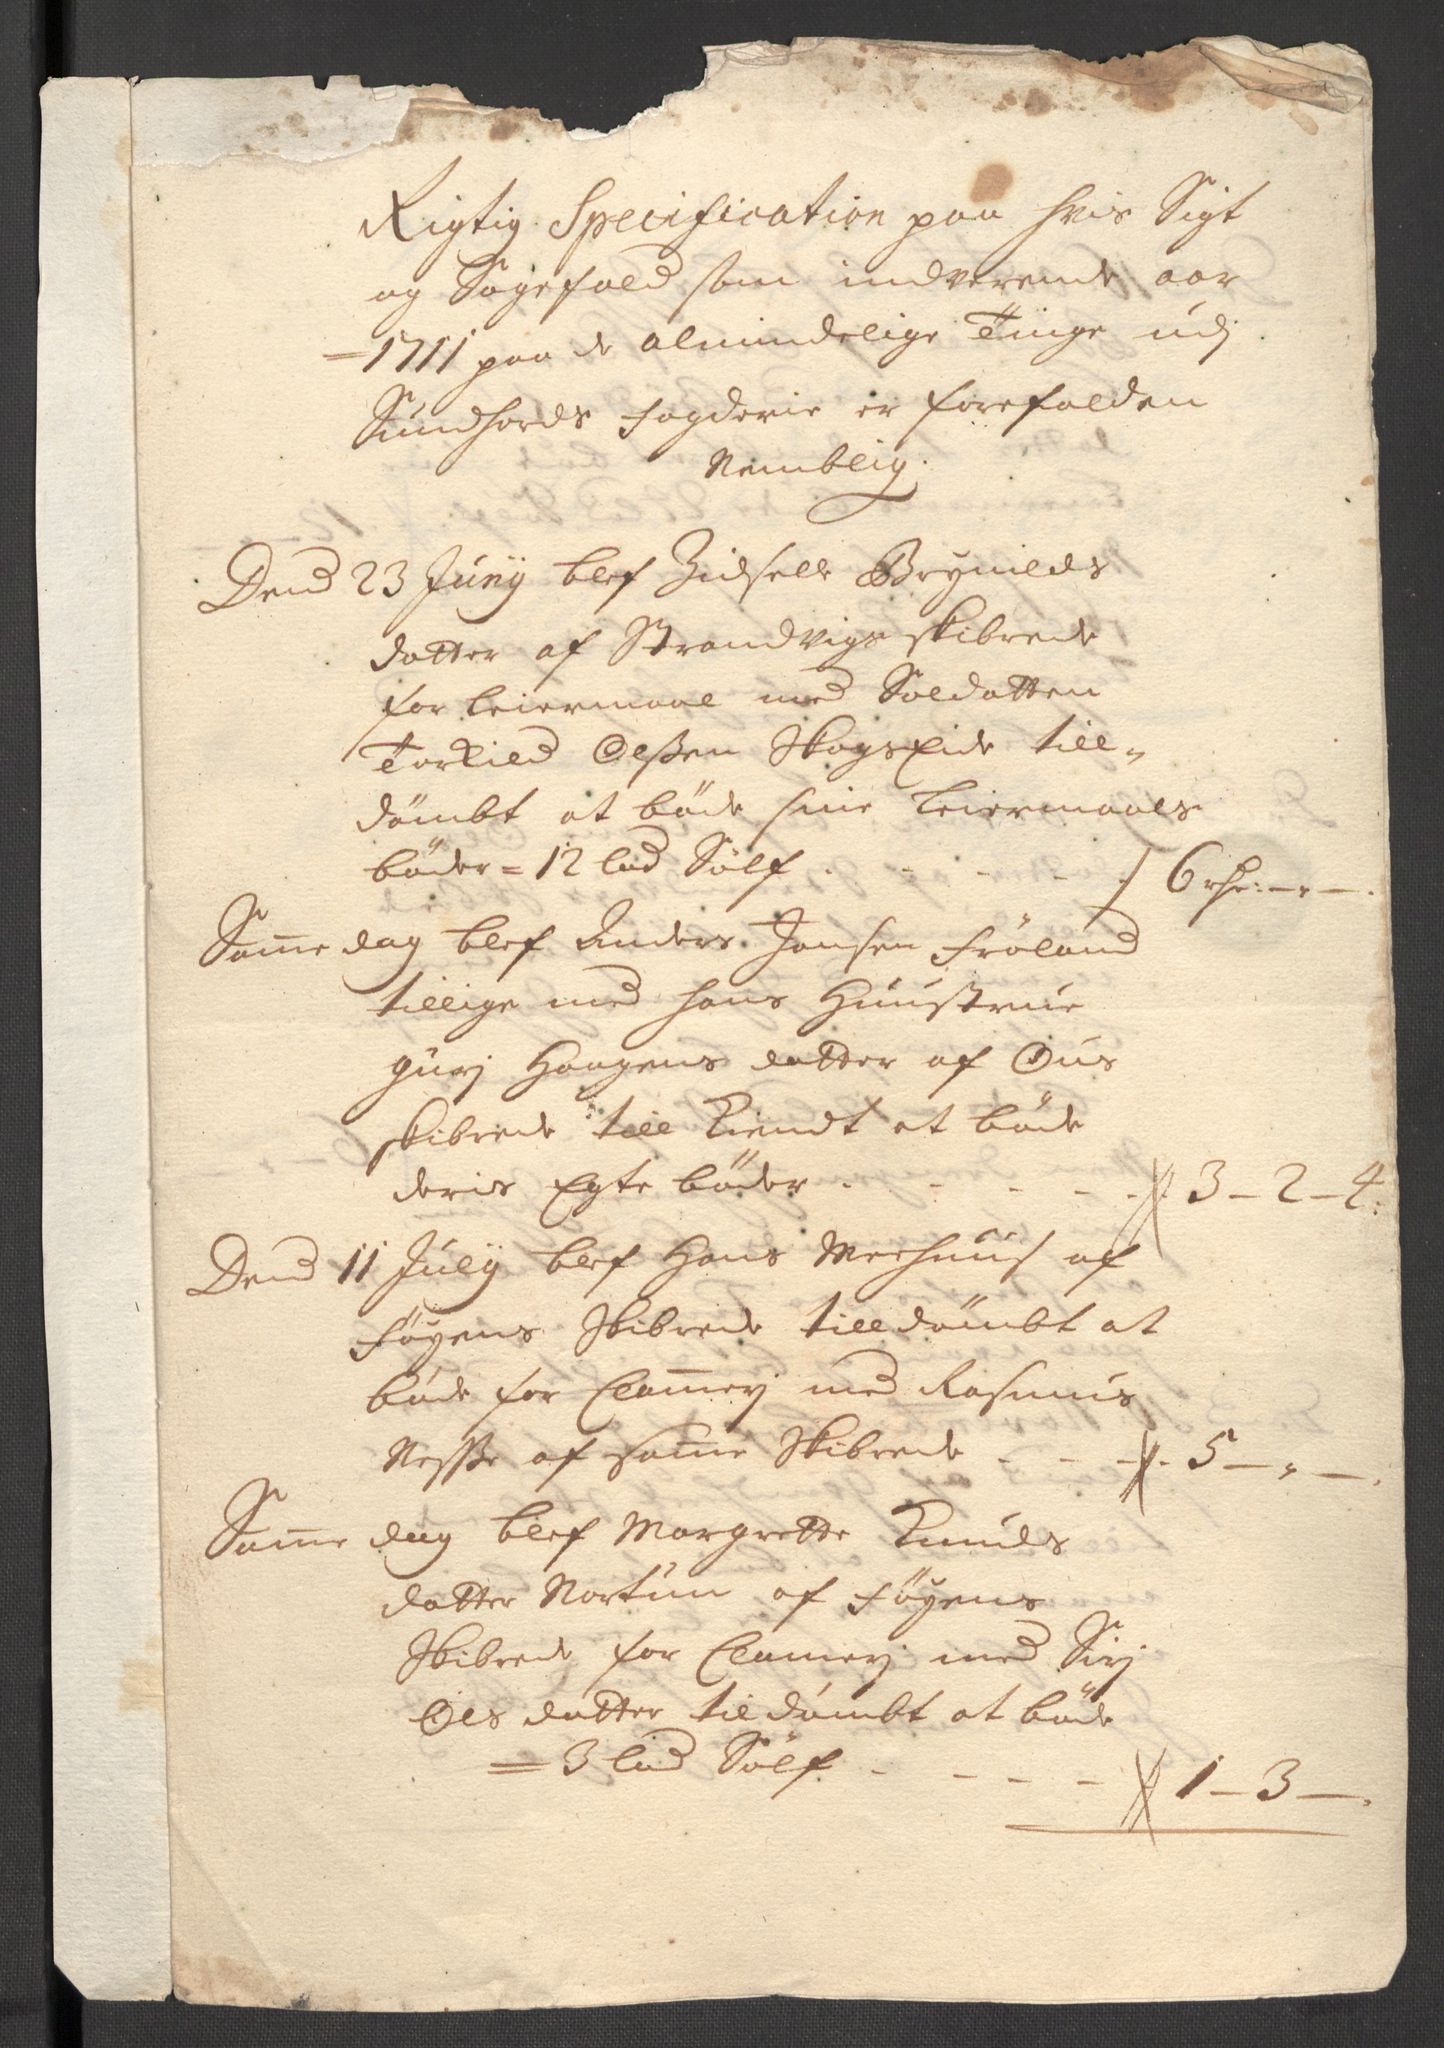 Rigtig Specification paa hvis Sigt
og Sagefald som indverende aar
=1711 paa de almindelige Tinge udj
Sundhords fogderie er forefalden
Nemblig.
Dend 23 Junÿ blef Zidselle Brynilds
datter af Strandvigs skibrede
for leiermaal med Soldatten
Torkild Olßen Skogs Eide till-
dömbt at böde sine Leiermaals
böder = 12 lod Sölf . - - - - 6 rdr:-,-.
Same dag blef Anders Jansen Fröland
tillige med hans Huustrue
gurj Haagens datter af Ous
skibrede till kiendt at böde
deris Egte böder . - - - - 3 - 2 - 4:
Dend 11 Julÿ blef Hans Mehuus af
föyens Skibrede tilldömbt at
böde for Clamerj med Rasmus
Nesße af same Skibrede - - - 5 - , - .
Same dag blef Margrette Knuds
datter Nortun af föyens
Skibrede for Clamerj med Sirj
Ols datter til dömbt at böde
= 3 lod Sölf . - - - - 1 - 3 - .